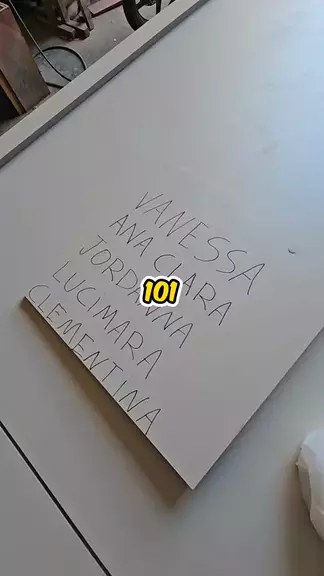 VANESSA
ANA CLARA
JORDANNA
LUCIMARA
CLEMENTINA
101